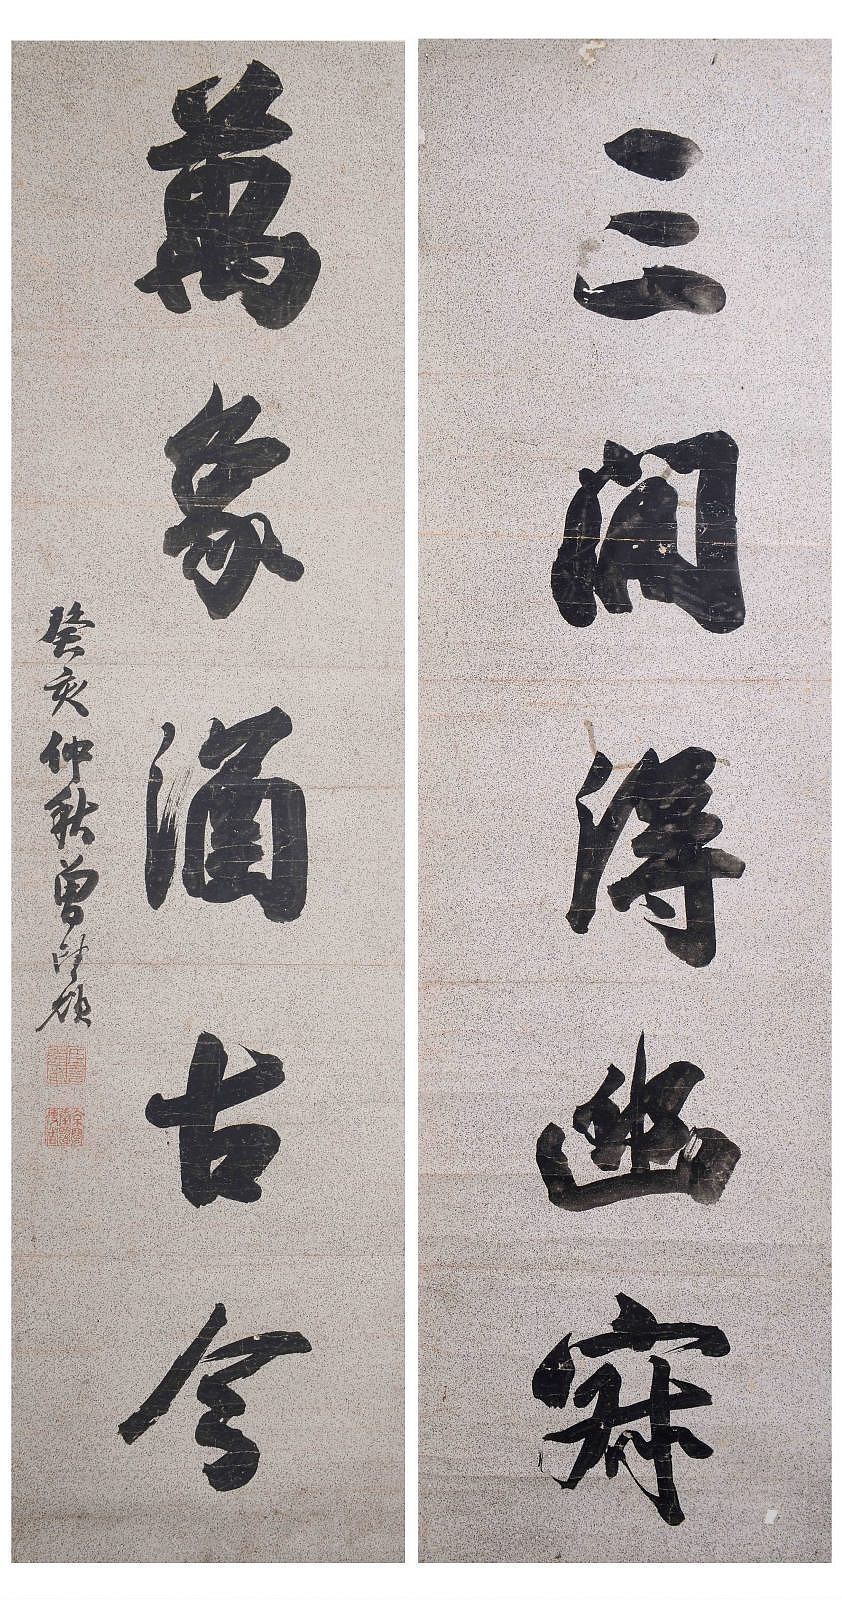 三間得幽寂
萬象涵古今
癸亥仲秋曾望顏